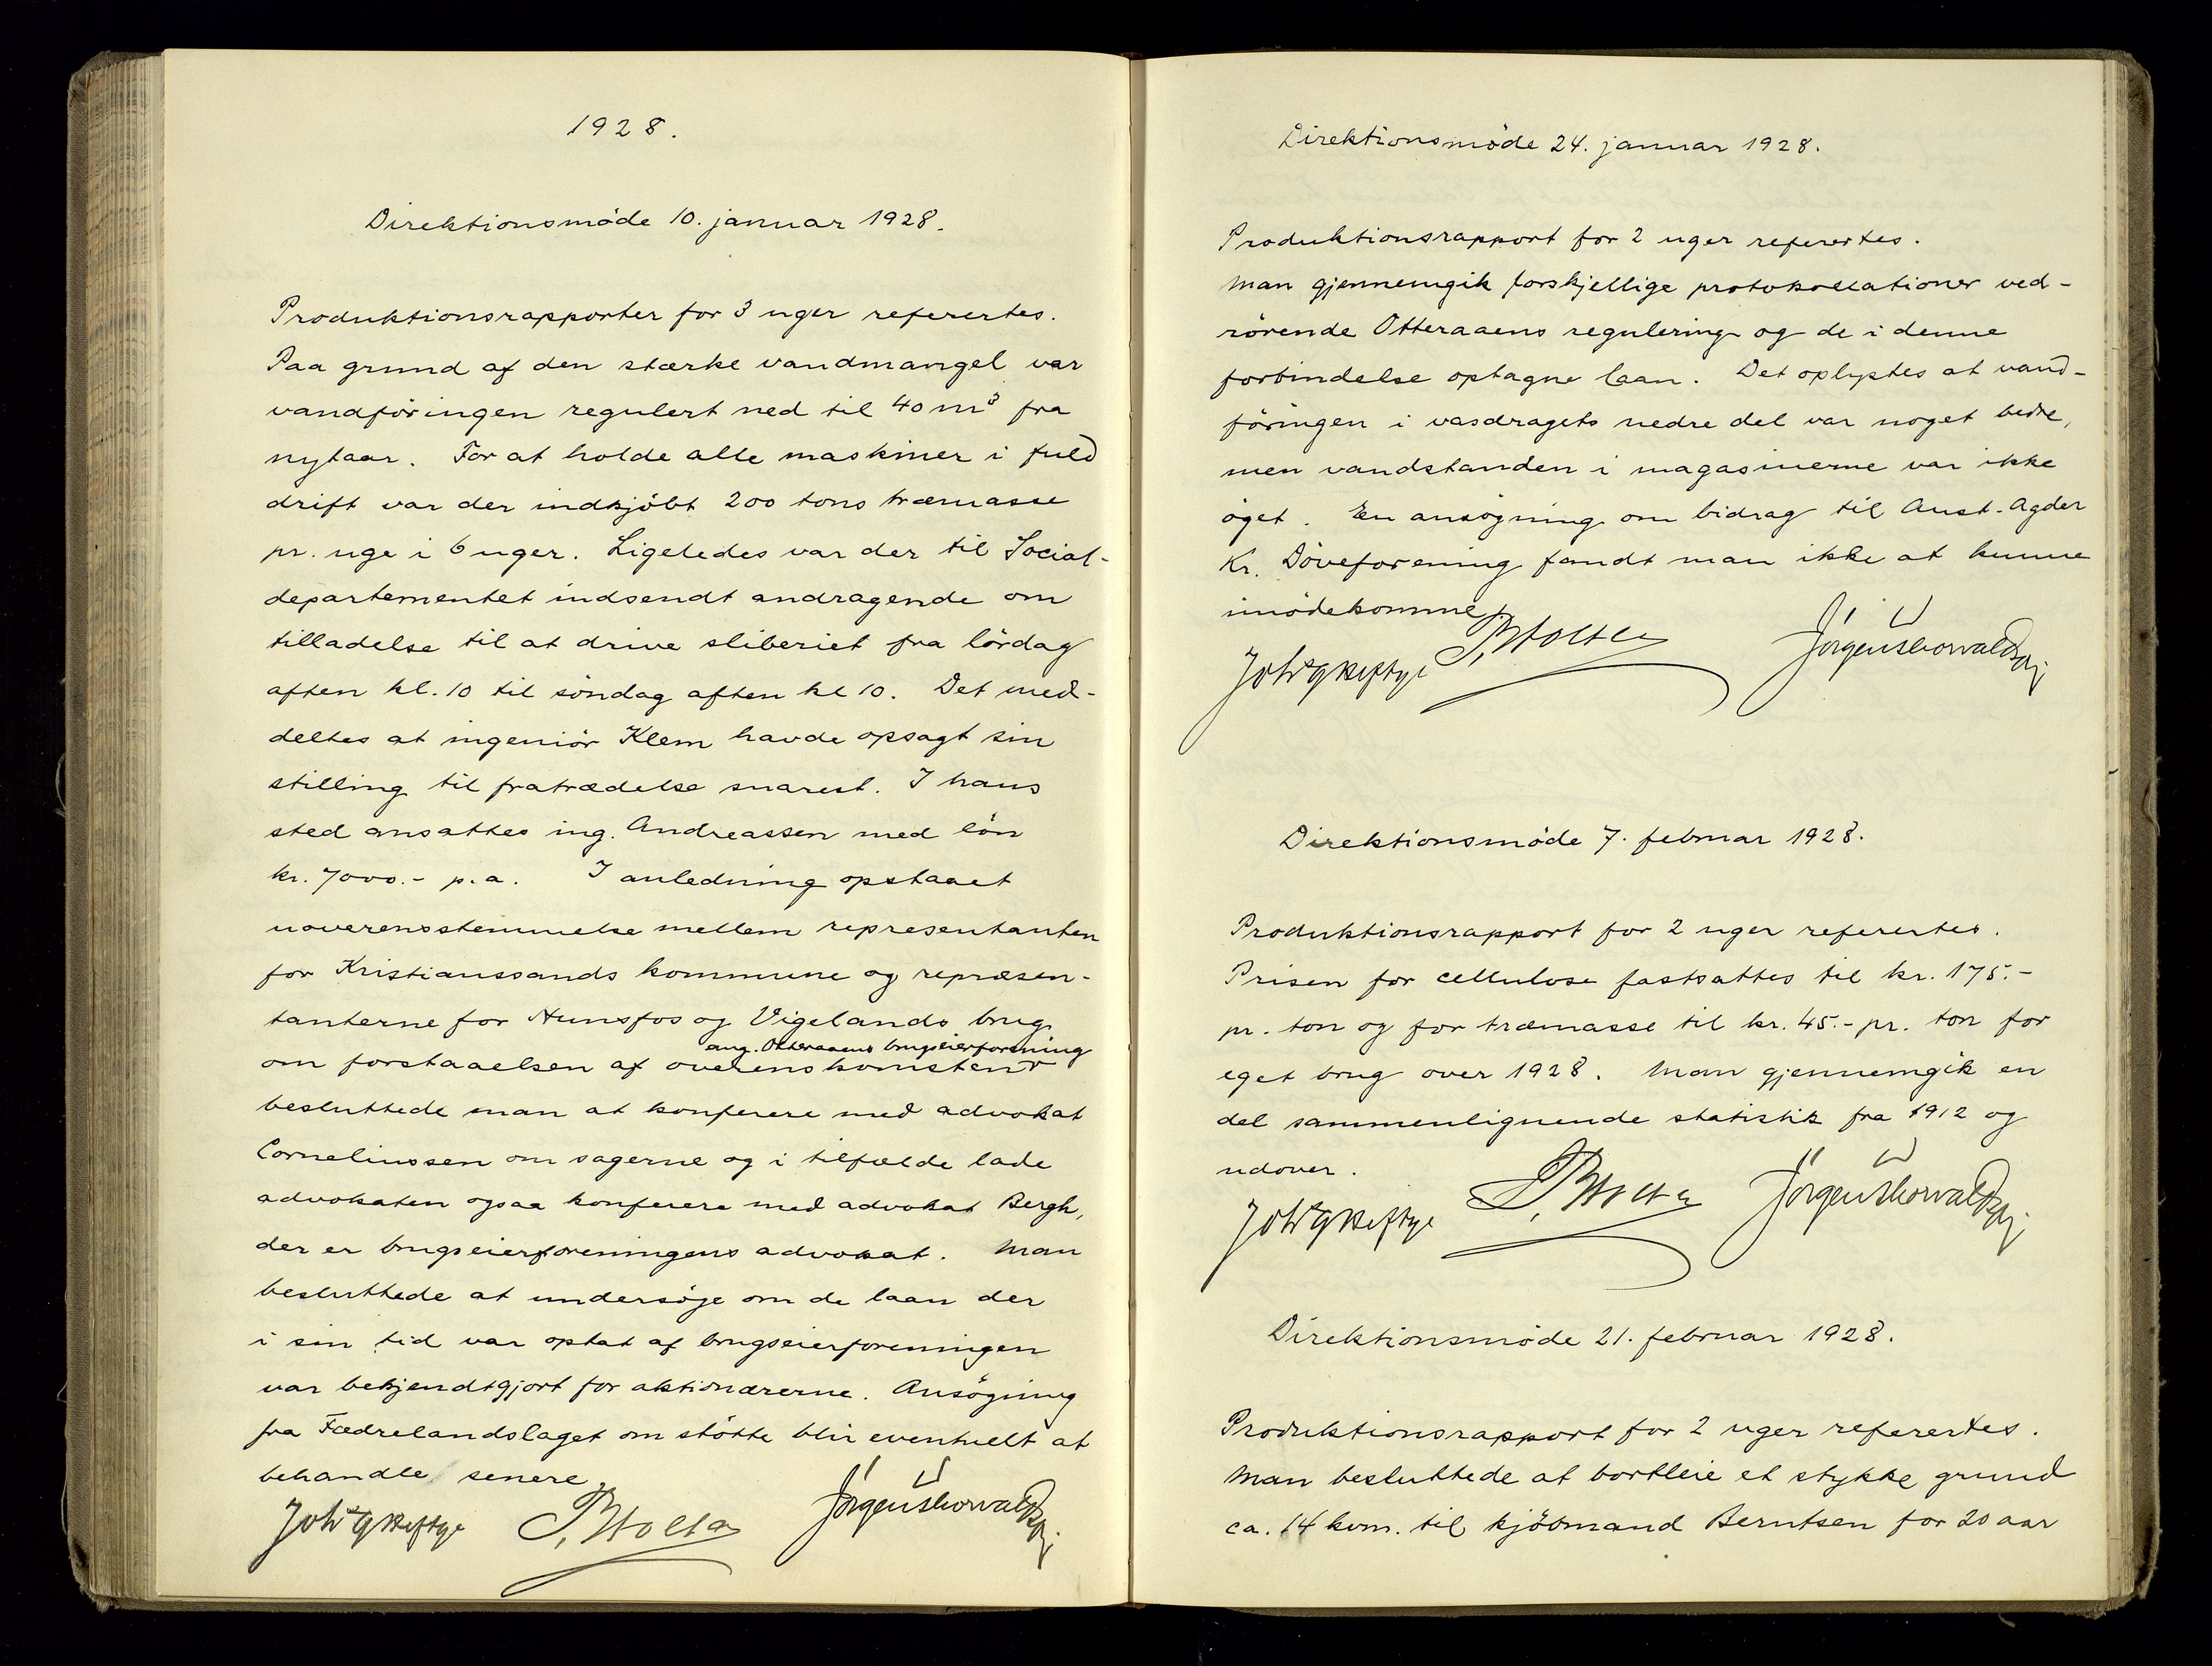 1928.
Direktionsmöde 10. januar 1928.
Produktionsrapporter for 3 uger refertes.
Paa grund af den stærke vandmangel var
vandföringen regulert ned til 40 m³ fra
nytaar. For at holde alle maskiner i fuld
drift var der indkjöbt 200 tons træmasse
pr. uge i 6 uger. Ligeledes var der til Social-
departementet indsendt andragende om
tilladelse til at drive sliberiet fra lördag
aften kl. 10 til söndag aften kl 10. Det med-
deltes at ingeniör Klem havde opsagt sin
stilling til fratrædelse snarest. I hans
sted ansattes ing. Andreassen med lön
kr. 7000.- p.a. I anledning opstaaet
uoverensstemmelse mellem representanten
for Kristianssands kommune og repræsen-
tanterne for Hunsfos og Vigelands brug
ang. Otteraaens brugseierforening
om forstaaelsen af overenskomsten
besluttede man at konferere med advokat
Corneliussen om sagerne og i tilfælde lade
advokaten ogsaa konferere med advokat Bergh,
der er brugseierforeningens advokat. Man
besluttede at undersöge om de laan der
i sin tid var optat af brugseierforeningen
var bekjendtgjort for aktionærerne. Ansögning
fra Fædrelandslaget om stötte blir eventuelt at
behandle senere.
Joh Heftye P. Holta Jörgen Thorvaldsen
Direktionsmöde 24. januar 1928.
Produktionsrapport for 2 uger refertes.
Man gjennemgik forskjellige protokollationer ved-
rörende Otteraaens regulering og de i denne
forbindelse optagne laan. Det oplystes at vand-
föringen i vasdragets nedre del var noget bedre,
men vandstanden i magasinerne var ikke
öget. En ansögning om bidrag til Aust-Agder
Kr. Döveforening fandt man ikke at kunne
imödekomme.
Joh Heftye P. Holta Jörgen Thorvaldsen
Direktionsmöde 7. februar 1928.
Produktionsrapport for 2 uger refertes.
Prisen for cellulose fastsattes til kr. 175.-
pr. ton og for træmasse til kr. 45.- pr. ton for
eget brug over 1928. Man gjennemgik en
del sammenlignende statistik fra 1912 og
udover.
Joh Heftye P. Holta Jörgen Thorvaldsen
Direktionsmöde 21. februar 1928.
Produktionsrapport for 2 uger refertes.
Man besluttede at bortleie et stykke grund
ca. 14 kvm. til kjöbmand Berntsen for 20 aar